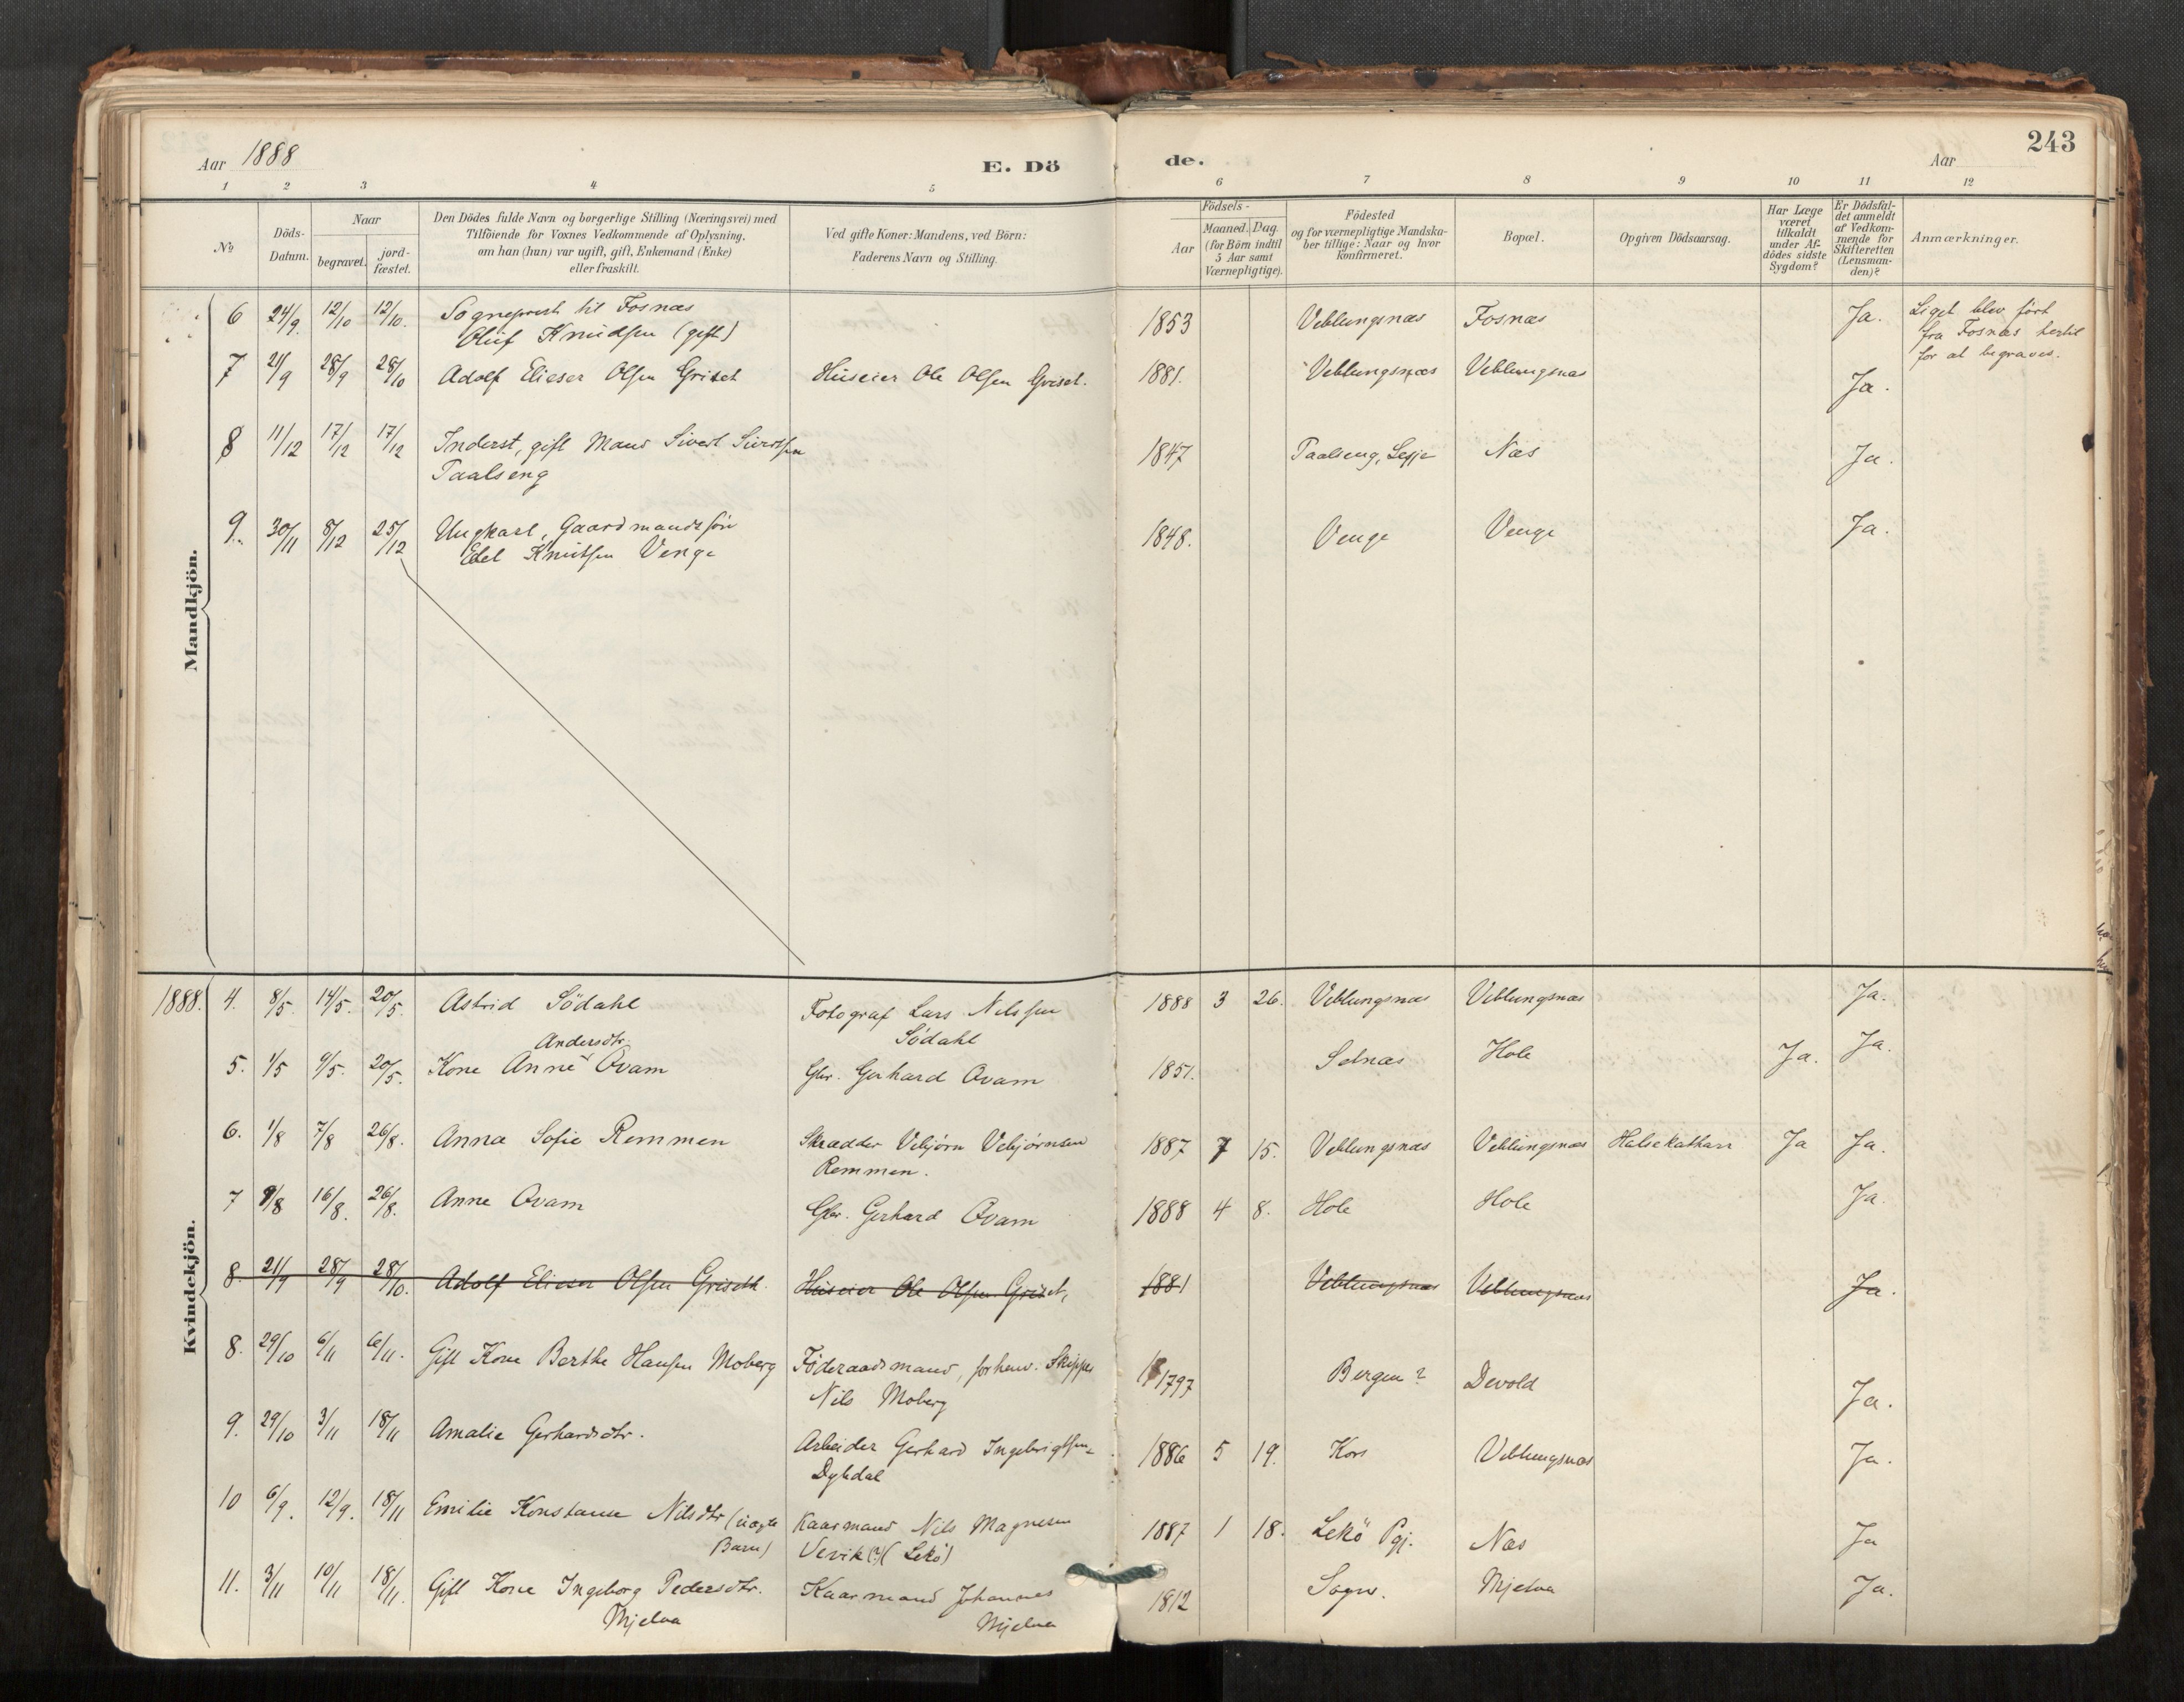 243
Aar 1888
E. Dö
de.
Aar
1 2 3 4 5 6 7 8 9 10 11 12
No
Döds-
Datum.
Naar
begravet.
jord-
fæstet.
Den Dödes fulde Navn og borgerlige Stilling (Næringsvei) med
Tilföiende for Voxnes Vedkommende af Oplysning,
om han (hun) var ugift, gift, Enkemand (Enke)
eller fraskilt.
Ved gifte Koner: Mandens, ved Börn:
Faderens Navn og Stilling.
Födsels-
Aar
Maaned. Dag.
(for Börn indtil
5 Aar samt
Værnepligtige).
Födested
og for værnepligtige Mandska-
ber tillige: Naar og hvor
konfirmeret.
Bopæl.
Opgiven Dödsaarsag.
Har Læge
været
tilkaldt
under Af-
dödes sidste
Sygdom?
Er Dödsfal-
det anmeldt
af Vedkom-
mende for
Skifteretten
(Lensman-
den)?
Anmærkninger.
Mandkjön.
6 24/9. 12/10 12/10. Sogneprest til Fosnæs 1853 Veblungsnæs Fosnæs Ja. Liget blev ført
Oluf Knudsen (gift) fra Fosnæs hertil
for at begraves.
7 21/9 28/9 28/10 Adolf Elieser Olsen Griset Huseier Ole Olsen Griset. 1881. Veblungsnæs Veblungsnæs Ja.
8 11/12 17/12 17/12 Inderst, gift Mand Sivert Sivertsen 1847 Taalseng, Lesje Næs Ja.
Taalseng
9. 30/11 8/12 25/12 Ungkarl, Gaardmandssøn 1848. Venge Venge Ja.
Edel Knutsen Venge
Kvindekjön.
1888. 4. 8/5. 14/5. 20/5. Astrid Södahl Fotograf Lars Nilssen 1888 3 26. Veblungsnæs Veblungsnæs Ja.
Södahl
Andersdtr.
5. 1/5 9/5. 20/5. Kone Anne Ovam Gbr. Gerhard Ovam 1851. Setnæs Hole Ja. Ja.
6. 1/8 7/8 26/8. Anna Sofie Remmen Skrædder Vebjørn Vebjørnsen 1887 7 15. Veblungsnæs Veblungsnæs Halsekatharr Ja Ja.
Remmen.
7 9/8 16/8. 26/8. Anne Ovam Gbr. Gerhard Ovam 1888 4 8. Hole Hole Ja.
8. 21/9 28/9 28/10. Adolf Elieser Olsen Griseth. Huseier Ole Olsen Griset, 1881 Veblungsnæs Veblungsnæs Ja.
8. 29/10 6/11 6/11. Gift Kone Berthe Hansen Moberg Föderaadsmand, forhenv. Skipper 1797 Bergen? Devold Ja.
Nils Moberg
9. 29/10 3/11 18/11 Amalie Gerhardsdtr. Arbeider Gerhard Ingebrigtsen 1886 5 19. Kors Veblungsnæs Ja.
Dyledal
10 6/9. 12/9. 18/11 Emilie Konstanse Nilsdtr (uægte Kaarmand Nils Magnesen 1887 1 18. Lekö Pgj. Næs Ja
Barn) Vevik(?) (Lekö)
11. 3/11 10/11 18/11. Gift Kone Ingeborg Pedersdtr. Kaarmand Johannes 1812 Sogn. Mjelva Ja.
Mjelva Mjelva